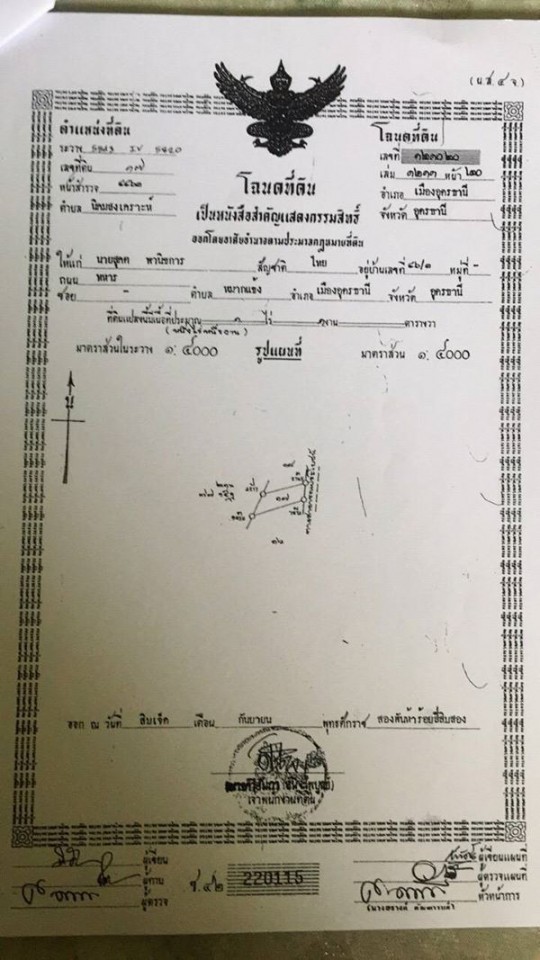 (น.ส.๔ จ)
ตำแหน่งที่ดิน
ระวาง 5543 IV 5420
เลขที่ดิน ๑๗
หน้าสำรวจ
ตำบล นิคมสงเคราะห์
โฉนดที่ดิน
เลขที่
เล่ม ๑๒๑๑ หน้า ๒๐
อำเภอ เมืองอุดรธานี
จังหวัด อุดรธานี
โฉนดที่ดิน
เป็นหนังสือสำคัญแสดงกรรมสิทธิ์
ออกโดยอาศัยอำนาจตามประมวลกฎหมายที่ดิน
ให้แก่ สัญชาติ ไทย อยู่บ้านเลขที่ หมู่ที่ -
ถนน ทหาร
ซอย - ตำบล หมากแข้ง อำเภอ เมืองอุดรธานี จังหวัด อุดรธานี
ที่ดินแปลงนี้มีเนื้อที่ประมาณ ๑ ไร่ ๑ งาน ตารางวา
(หนึ่งไร่หนึ่งงาน)
มาตราส่วนในระวาง ๑: ๔๐๐๐ รูปแผนที่ มาตราส่วน ๑: ๔๐๐๐
น
๑๗
๑๖
ออก ณ วันที่ สิบเจ็ด เดือน กันยายน พุทธศักราช สองพันห้าร้อยยี่สิบสอง
เจ้าพนักงานที่ดิน
ผู้เขียน
ผู้ทาน
ผู้ตรวจ
ช.๔๒ 220115
ผู้เขียนแผนที่
ผู้ตรวจแผนที่
หัวหน้าการ